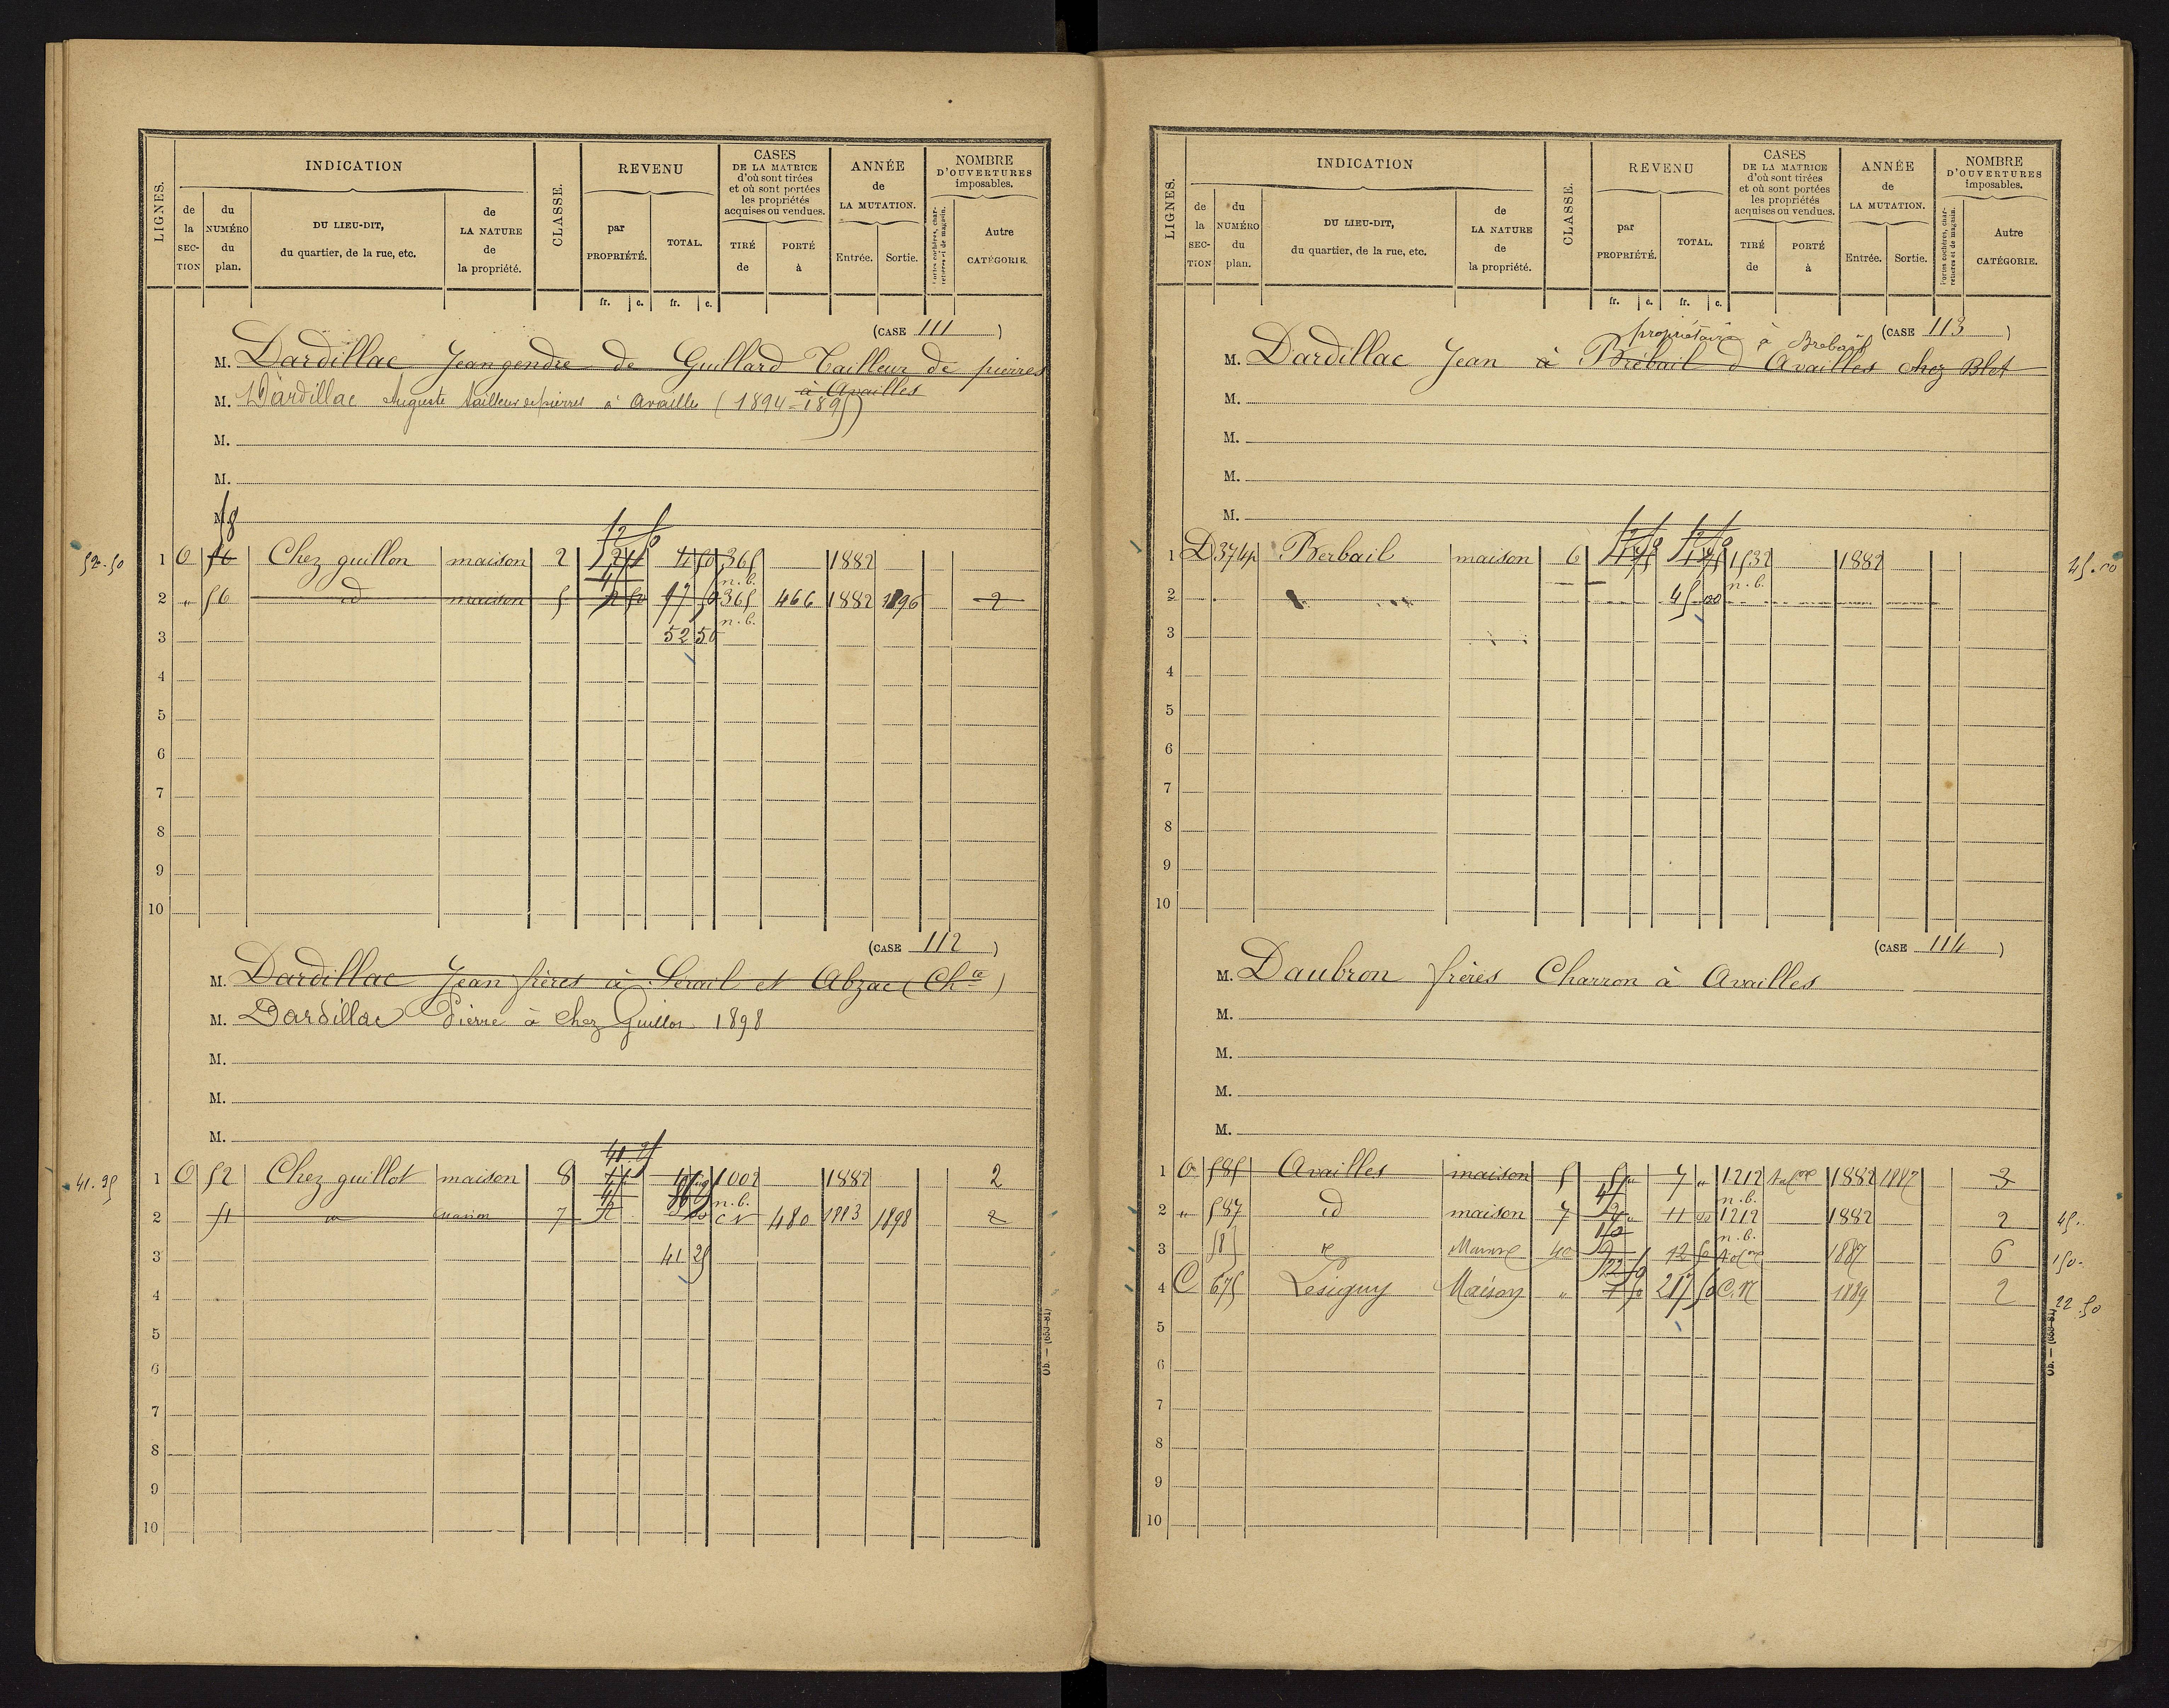 LIGNES.
INDICATION
de la SECTION
du NUMÉRO du plan.
DU LIEU-DIT, du quartier, de la rue, etc.
de LA NATURE de la propriété.
CLASSE.
REVENU
par PROPRIÉTÉ.
TOTAL.
fr. c. fr. c.
CASES DE LA MATRICE d'où sont tirées et où sont portées les propriétés acquises ou vendues.
TIRÉ de
PORTÉ à
ANNÉE de LA MUTATION.
Entrée. Sortie.
NOMBRE D'OUVERTURES imposables.
Portes cochères, charretières et de magasin.
Autre CATÉGORIE.
(CASE 111)
M. Dardillac Jean gendre de Guillard Tailleur de pierres
à Availles
M. Dardillac Auguste tailleur de pierres à Availles (1894-1895)
M.
M.
M.
58
52.50
1 O 56 Chez guillon maison 2 365 1882
n.b.
2 " 56 id maison 5 365 466 1882 1896 2
n.b.
3 52 50
4
5
6
7
8
9
10
(CASE 112)
M. Dardillac Jean frères à Serail et Abzac (Chte)
M. Dardillac Pierre à Chez Guillot 1898
M.
M.
M.
41.25
41.25
1 O 52 Chez guillot maison 8 1002 1882 2
n.b.
2 51 " maison 7 CN 480 1893 1898 2
3 41 25
4
5
6
7
8
9
10
LIGNES.
INDICATION
de la SECTION
du NUMÉRO du plan.
DU LIEU-DIT, du quartier, de la rue, etc.
de LA NATURE de la propriété.
CLASSE.
REVENU
par PROPRIÉTÉ.
TOTAL.
fr. c. fr. c.
CASES DE LA MATRICE d'où sont tirées et où sont portées les propriétés acquises ou vendues.
TIRÉ de
PORTÉ à
ANNÉE de LA MUTATION.
Entrée. Sortie.
NOMBRE D'OUVERTURES imposables.
Portes cochères, charretières et de magasin.
Autre CATÉGORIE.
(CASE 113)
propriétaire à Brebail
M. Dardillac Jean à Brébail d'Availles chez Blet
M.
M.
M.
M.
1 D 374p Berbail maison 6 1532 1882
45.00
n.b.
2 45 00
3
4
5
6
7
8
9
10
(CASE 114)
M. Daubron frères Charron à Availles
M.
M.
M.
M.
1 585 Availles maison 5 5 " 7 " 1212 1882 1887 3
n.b.
2 " 587 id maison 7 11 1212 1882 2
45.
n.b.
3 585 40 12 50 1887 6
150.
4 C 675 Lesigny Maison " 217 50 C.N 1889 2
22.50
5
6
7
8
9
10